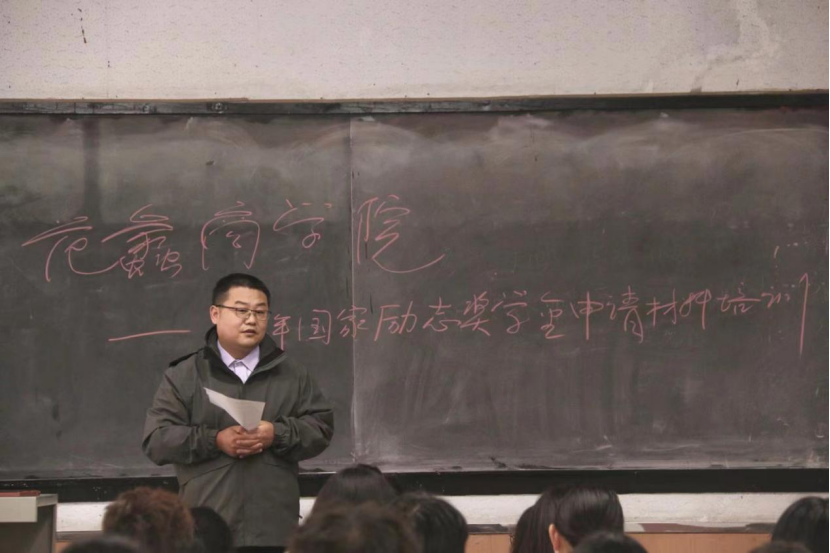 范蠡商学院
——年国家励志奖学金申请材料培训